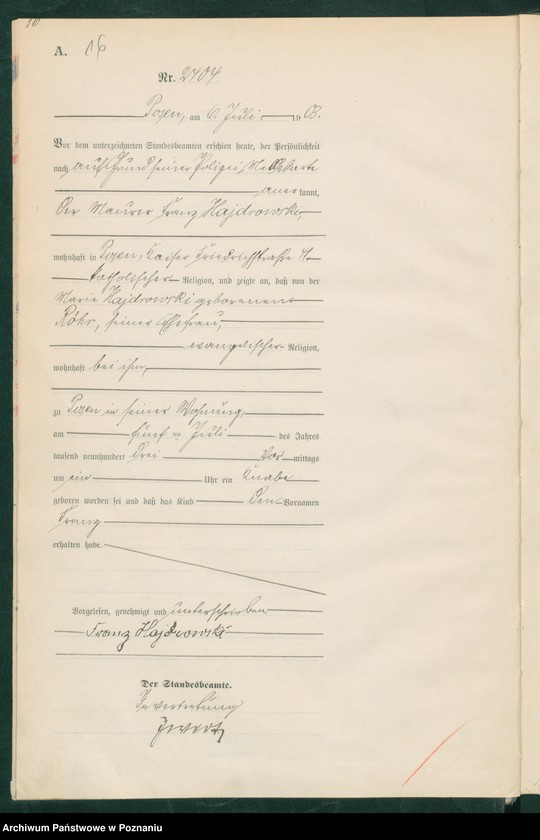 A. 16
Nr. 2404
Posen, am 6. Juli 1903.
Vor dem unterzeichneten Standesbeamten erschien heute, der Persönlichkeit
nach auf Grund seiner Polizei Meldekarte
anerkannt,
Der Maurer Franz Hajdrowski,
wohnhaft in Posen, Kaiser Friedrichstraße
katholischer Religion, und zeigte an, daß von der
Marie Hajdrowski geborenen
Röhr, seiner Ehefrau,
evangelischer Religion,
wohnhaft bei ihm,
zu Posen in seiner Wohnung,
am fünften Juli des Jahres
tausend neunhundert drei Vormittags
um ein Uhr ein Knabe
geboren worden sei und daß das Kind den Vornamen
Franz
erhalten habe.
Vorgelesen, genehmigt und unterschrieben
Franz Hajdrowski
Der Standesbeamte.
In Vertretung
Archiwum Państwowe w Poznaniu